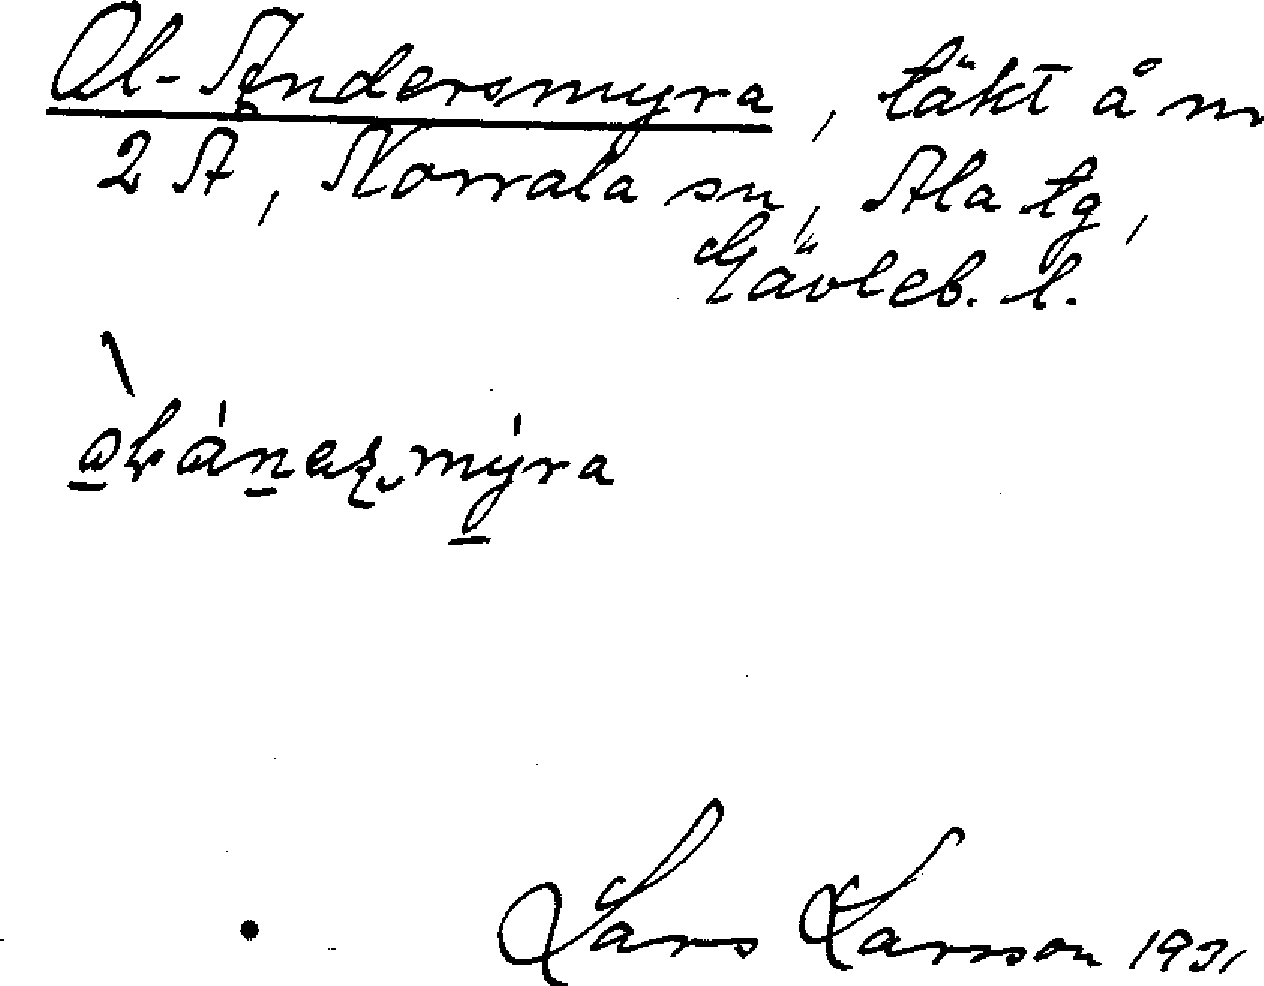 Ol-Andersmyra, täkt å m
2 A, Norrala sn, Ala tg,
Gävleb. l.
Lars Larsson 1931